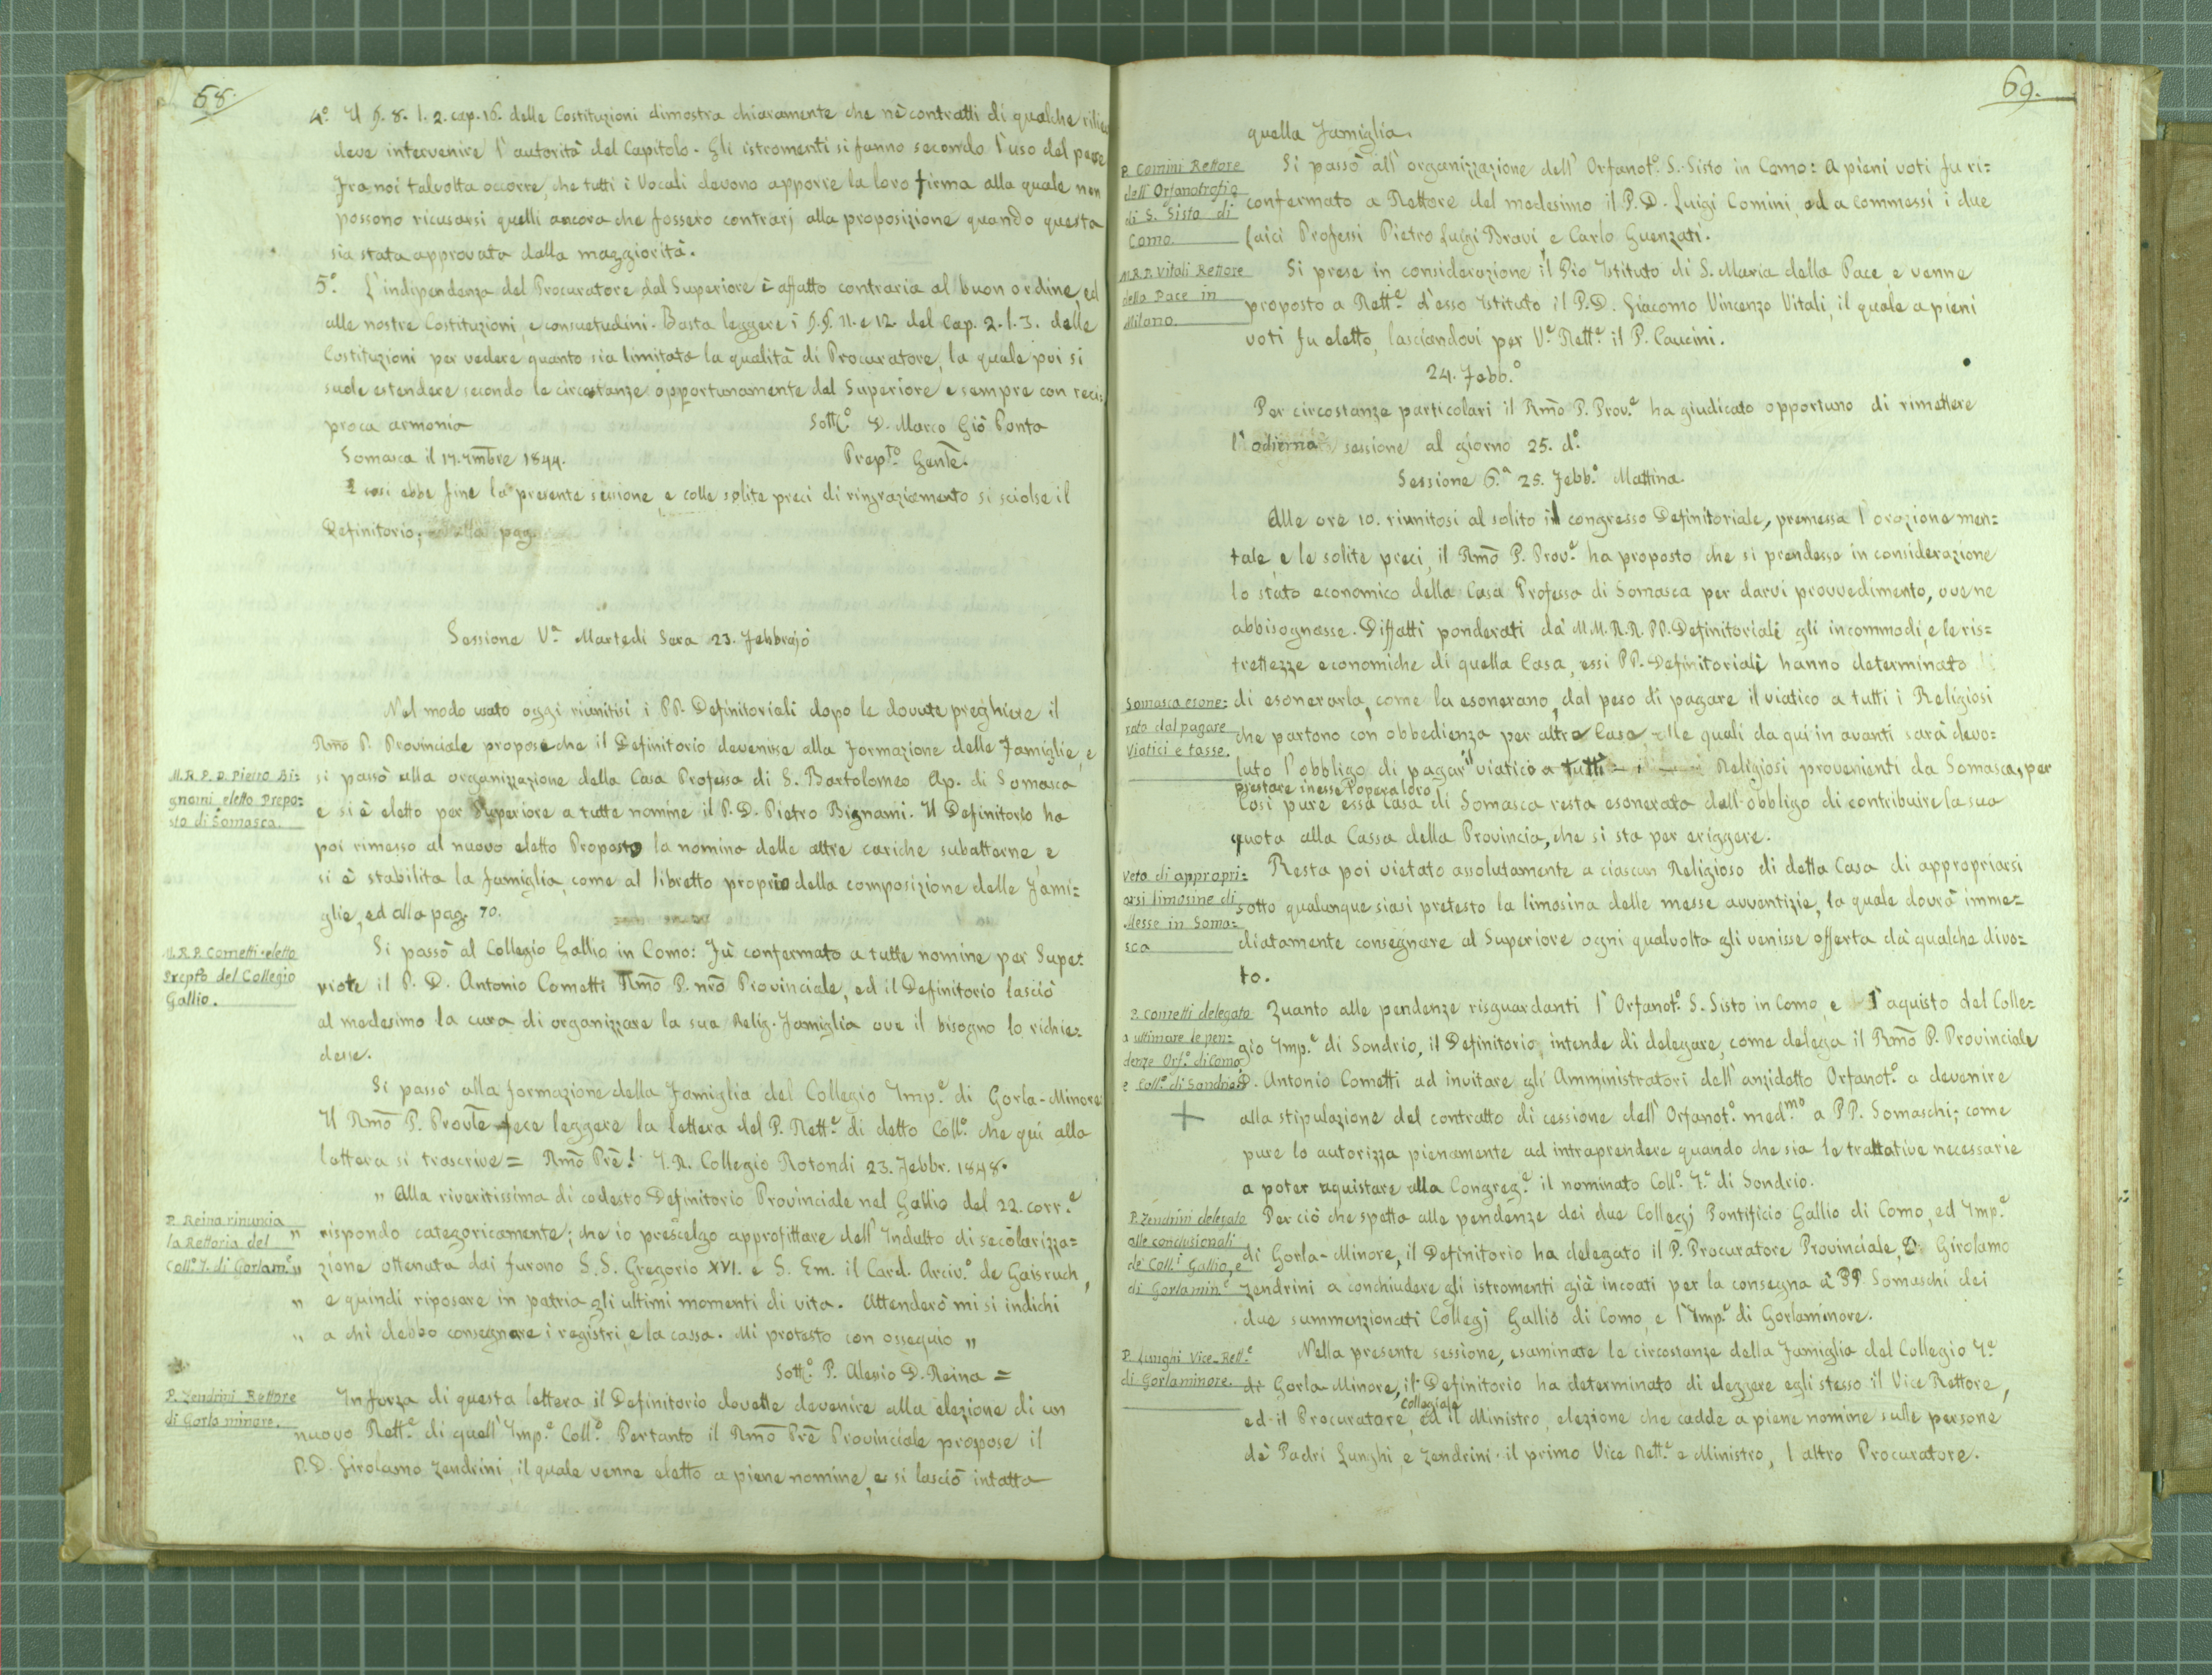 68.
4.º Il §. 8. l. 2. cap. 16. delle Costituzioni dimostra chiaramente che nè contratti di qualche
deve intervenire l'autorità del Capitolo. Gli istromenti si fanno secondo l'uso del
Fra noi talvolta occorre, che tutti i Vocali devono apporre la loro firma alla quale non
possono ricusarsi quelli ancora che fossero contrarj alla proposizione quando questa
sia stata approvata dalla maggiorità.
5.º L'indipendenza del Procuratore dal Superiore è affatto contraria al buon ordine, ed
alle nostre Costituzioni, e consuetudini. Basta leggere i §.§. 11. e 12 del Cap. 2. l. 3. delle
Costituzioni per vedere quanto sia limitata la qualità di Procuratore, la quale poi si
suole estendere secondo le circostanze opportunamente dal Superiore e sempre con reci=
proca armonia
Sott.º D. Marco Giò Ponta
Somasca il 17. 7mbre 1844.
Prep.to Genle.
E così ebbe fine la presente sessione, e colle solite preci di ringraziamento si sciolse il
Definitorio; pag.
Sessione V.a Martedì Sera 23. Febbrajo
Nel modo usato oggi riunitisi i PP. Definitoriali dopo le dovute preghiere il
Rmo P. Provinciale propose che il Definitorio devenisse alla formazione delle Famiglie, e
M.R.P.D. Pietro Bi=
gnami eletto Prepo=
sto di Somasca.
si passò alla organizzazione della Casa Professa di S. Bartolomeo Ap. di Somasca
e si è eletto per Superiore a tutte nomine il P. D. Pietro Bignami. Il Definitorio ha
poi rimesso al nuovo eletto Proposto la nomina delle altre cariche subalterne e
si è stabilita la famiglia, come al libretto proprio della composizione delle Fami=
glie, ed alla pag. 70.
M.R.P. Cometti eletto
Prepto del Collegio
Gallio.
Si passò al Collegio Gallio in Como: Fu confermato a tutte nomine per Supe=
riore il P. D. Antonio Cometti Rmo P. nro Provinciale, ed il Definitorio lasciò
al medesimo la cura di organizzare la sua Relig. Famiglia ove il bisogno lo richie=
desse.
Si passò alla formazione della Famiglia del Collegio Imp.e di Gorla-Minore
Il Rmo P. Provle fece leggere la lettera del P. Rett.e di detto Coll.º che quì alla
lettera si trascrive = Rmo Prē! I. R. Collegio Rotondi 23. Febbr. 1848.
" Alla riveritissima di codesto Definitorio Provinciale nel Gallio del 22. corr.e
P. Reina rinuncia
la Rettoria del
Coll.º I. di Gorlam.e
" rispondo categoricamente; che io prescelgo approfittare dell'Indulto di secolarizza=
" zione ottenuta dai furono S.S. Gregorio XVI. e S. Em. il Card. Arciv.º de Gaisruch,
" e quindi riposare in patria gli ultimi momenti di vita. Attenderò mi si indichi
" a chi debbo consegnare i registri, e la cassa. Mi protesto con ossequio "
Sott.º P. Alessio D. Reina =
P. Zendrini Rettore
di Gorla minore.
In forza di questa lettera il Definitorio dovette devenire alla elezione di un
nuovo Rett.e di quell'Imp.e Coll.º Pertanto il Rmo Prē Provinciale propose il
P. D. Girolamo Zendrini, il quale venne eletto a piene nomine, e si lasciò intatta
69.
quella Famiglia.
P. Comini Rettore
dell'Orfanotrofio
di S. Sisto di
Como.
Si passò all'organizzazione dell'Orfanot.º S. Sisto in Como: A pieni voti fu ri=
confermato a Rettore del medesimo il P. D. Luigi Comini, ed a commessi i due
Laici Professi Pietro Luigi Bravi, e Carlo Guenzati.
M.R.P. Vitali Rettore
della Pace in
Milano.
Si prese in considerazione il Pio Istituto di S. Maria della Pace, e venne
proposto a Rett.e d'esso Istituto il P. D. Giacomo Vincenzo Vitali, il quale a pieni
voti fu eletto, lasciandovi per V.e Rett.e il P. Caucini.
24. Febb.º
Per circostanze particolari il Rmo P. Prov.e ha giudicato opportuno di rimettere
l'odierna sessione al giorno 25. d.º
Sessione 6.a 25. Febb.º Mattina.
Alle ore 10. riunitosi al solito il congresso Definitoriale, premessa l'orazione men=
tale, e le solite preci, il Rmo P. Prov.e ha proposto che si prendesse in considerazione
lo stato economico della Casa Professa di Somasca per darvi provvedimento, ove ne
abbisognasse. Diffatti ponderati da M.M.R.R. PP. Definitoriali gli incommodi, e le ris=
trettezze economiche di quella Casa, essi PP. Definitoriali hanno determinato
Somasca esone=
rata dal pagare
Viatici e tasse.
di esonerarla, come la esonerano, dal peso di pagare il viatico a tutti i Religiosi
che partono con obbedienza per altre Case, alle quali da quì in avanti sarà devo=
luto l'obbligo di pagar il viatico a tutti Religiosi provenienti da Somasca, per
prestare in esse l'opera loro.
Così pure essa Casa di Somasca resta esonerata dall'obbligo di contribuire la sua
quota alla Cassa della Provincia, che si sta per eriggere.
Veto di appropri=
arsi limosine di
Messe in Soma=
sca
Resta poi vietato assolutamente a ciascun Religioso di detta Casa di appropriarsi
sotto qualunque siasi pretesto la limosina delle messe avventizie, la quale dovrà imme=
diatamente consegnare al Superiore ogni qualvolta gli venisse offerta dà qualche divo=
to.
P. Cometti delegato
a ultimare le pen=
denze Orf.º di Como,
e Coll.º di Sondrio
+
Quanto alle pendenze risguardanti l'Orfanot.º S. Sisto in Como, e l'aquisto del Colle=
gio Imp.e di Sondrio, il Definitorio intende di delegare, come delega il Rmo P. Provinciale
D. Antonio Cometti ad invitare gli Amministratori dell'anzidetto Orfanot.º a devenire
alla stipulazione del contratto di cessione dell'Orfanot.º med.mo a PP. Somaschi; come
pure lo autorizza pienamente ad intraprendere quando che sia le trattative necessarie
a poter aquistare alla Congreg.e il nominato Coll.º I.e di Sondrio.
P. Zendrini delegato
alle conclusionali
de' Coll.i Gallio, e
di Gorlamin.e
Per ciò che spetta alle pendenze dei due Collegj Pontificio Gallio di Como, ed Imp.e
di Gorla-Minore, il Definitorio ha delegato il P. Procuratore Provinciale, D. Girolamo
Zendrini a conchiudere gli istromenti già incoati per la consegna a' PP. Somaschi dei
due summenzionati Collegj Gallio di Como, e l'Imp.e di Gorlaminore.
P. Lunghi Vice-Rett.e
di Gorlaminore.
Nella presente sessione, esaminate le circostanze della Famiglia del Collegio I.e
di Gorla-Minore, il Definitorio ha determinato di eleggere egli stesso il Vice Rettore,
ed il Procuratore collegiale, ed il Ministro, elezione che cadde a piene nomine sulle persone
dè Padri Lunghi, e Zendrini: il primo Vice Rett.e e Ministro, l'altro Procuratore.